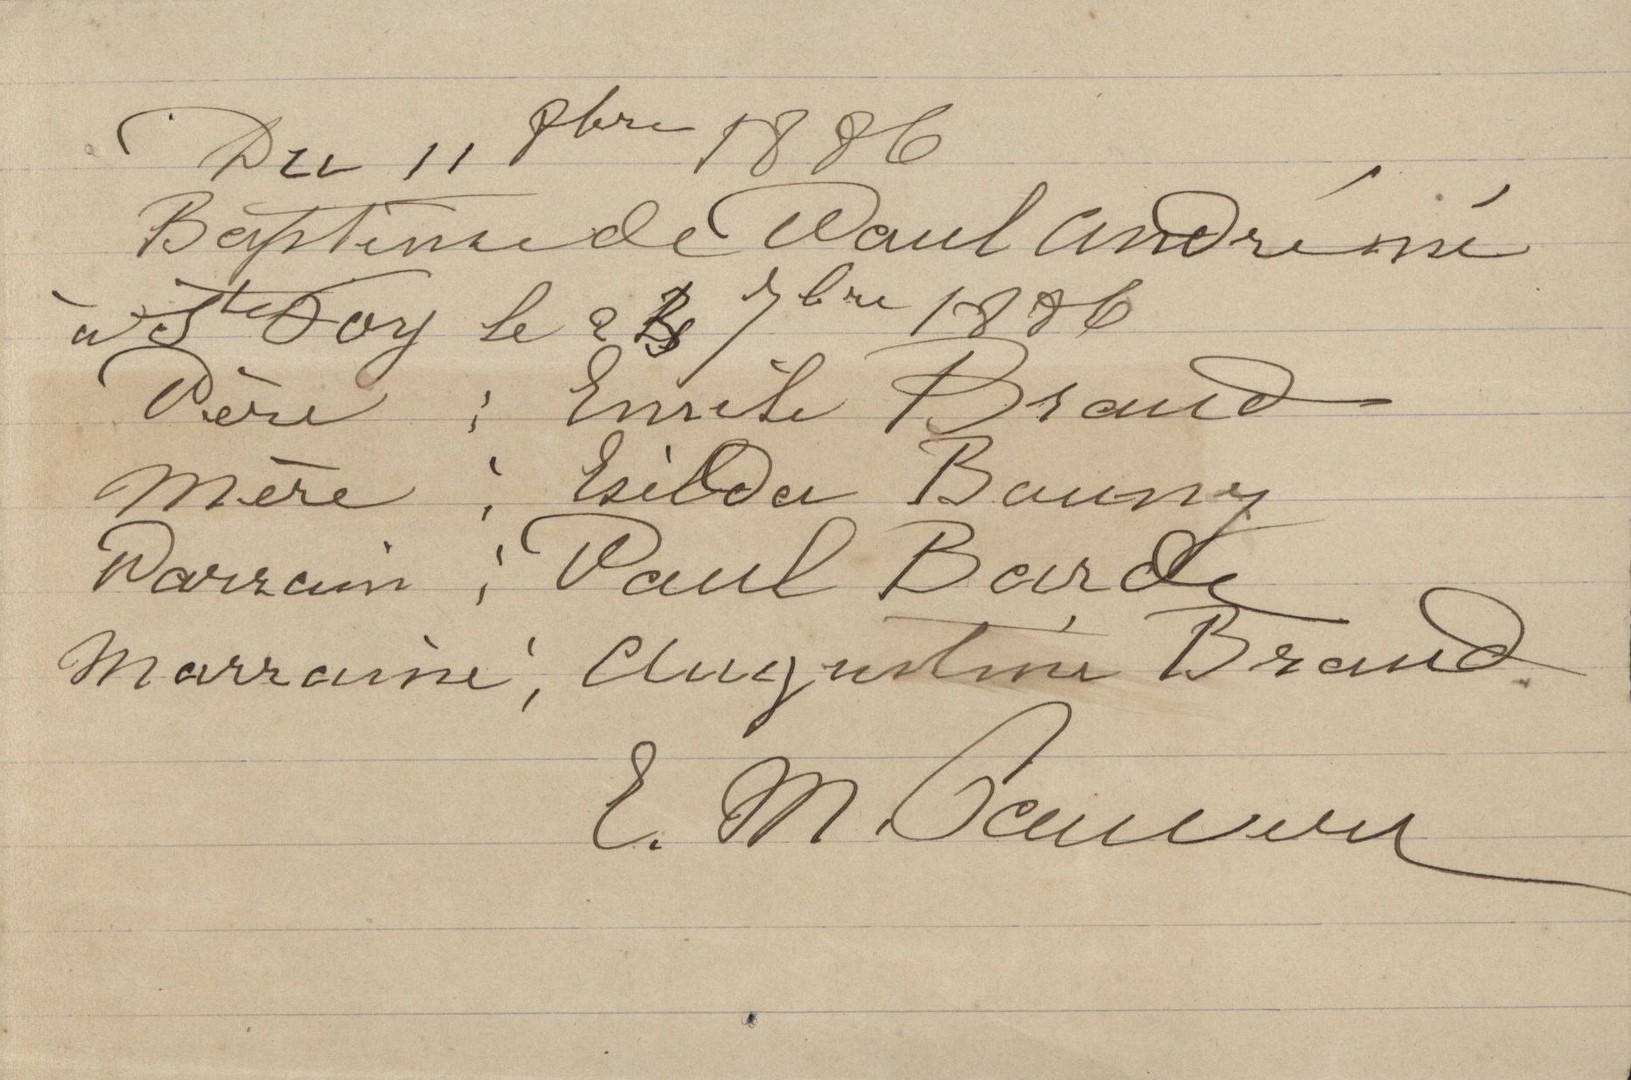 Du 11 8bre 1886
Baptême de Paul André né
à Ste Foy le 7bre 1886
Père : Emile Braud
Mère : Esilda Bouny
Parrain : Paul Barde
Marraine : Augustine Braud
E. M.